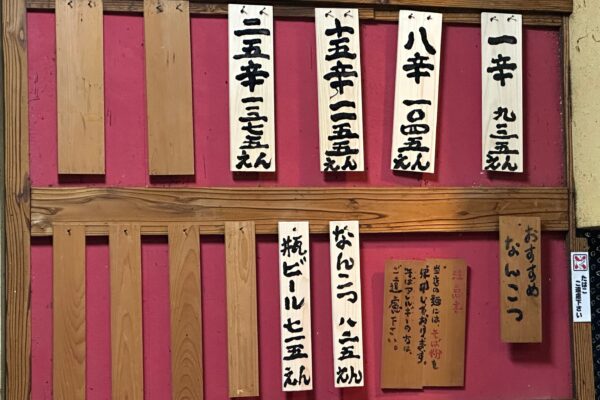 一辛 九三五えん
八辛 一〇四五えん
十五辛 一一五五えん
二五辛 一三七五えん
たばこ
ご遠慮下さい
おすすめ
なんこつ
注意書
当店の麺には、そば粉を
使用しております。
そばアレルギーの方は、
ご遠慮下さい。
なんこつ 八二五えん
瓶ビール 七一五えん